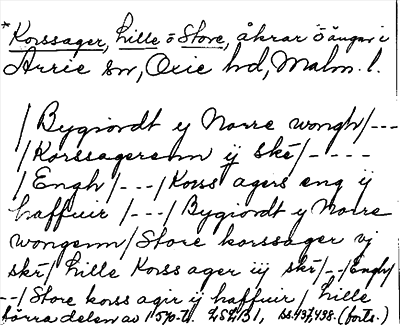 *Korssager, Lille o Store, åkrar o ängar i
Arrie sn, Oxie hd, Malm. l.
/ Bygiordt y Norre wongh/---
/Korssagerenn ij ske/----
/Engh/---/Korss agers eng ij
haffuir/---/Bygiordt y Norre
wongenn/Store korssager vj
ske/Lille Korss ager iij ske/--/Engh/
--/Store korss agir ij haffuir/Lille
förra delen av 1570-t. LSLB1, ss.437,438. (forts.)